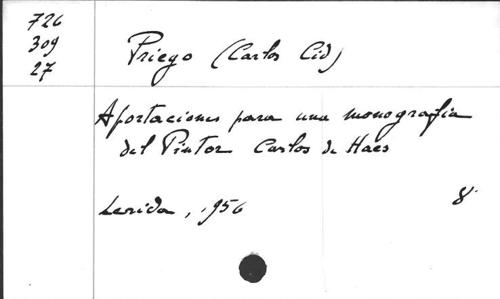 726
309
27
Priego (Carlos Cid)
Aportaciones para una monografia
del Pintor Carlos de Haes
Lerida, 1956
8º